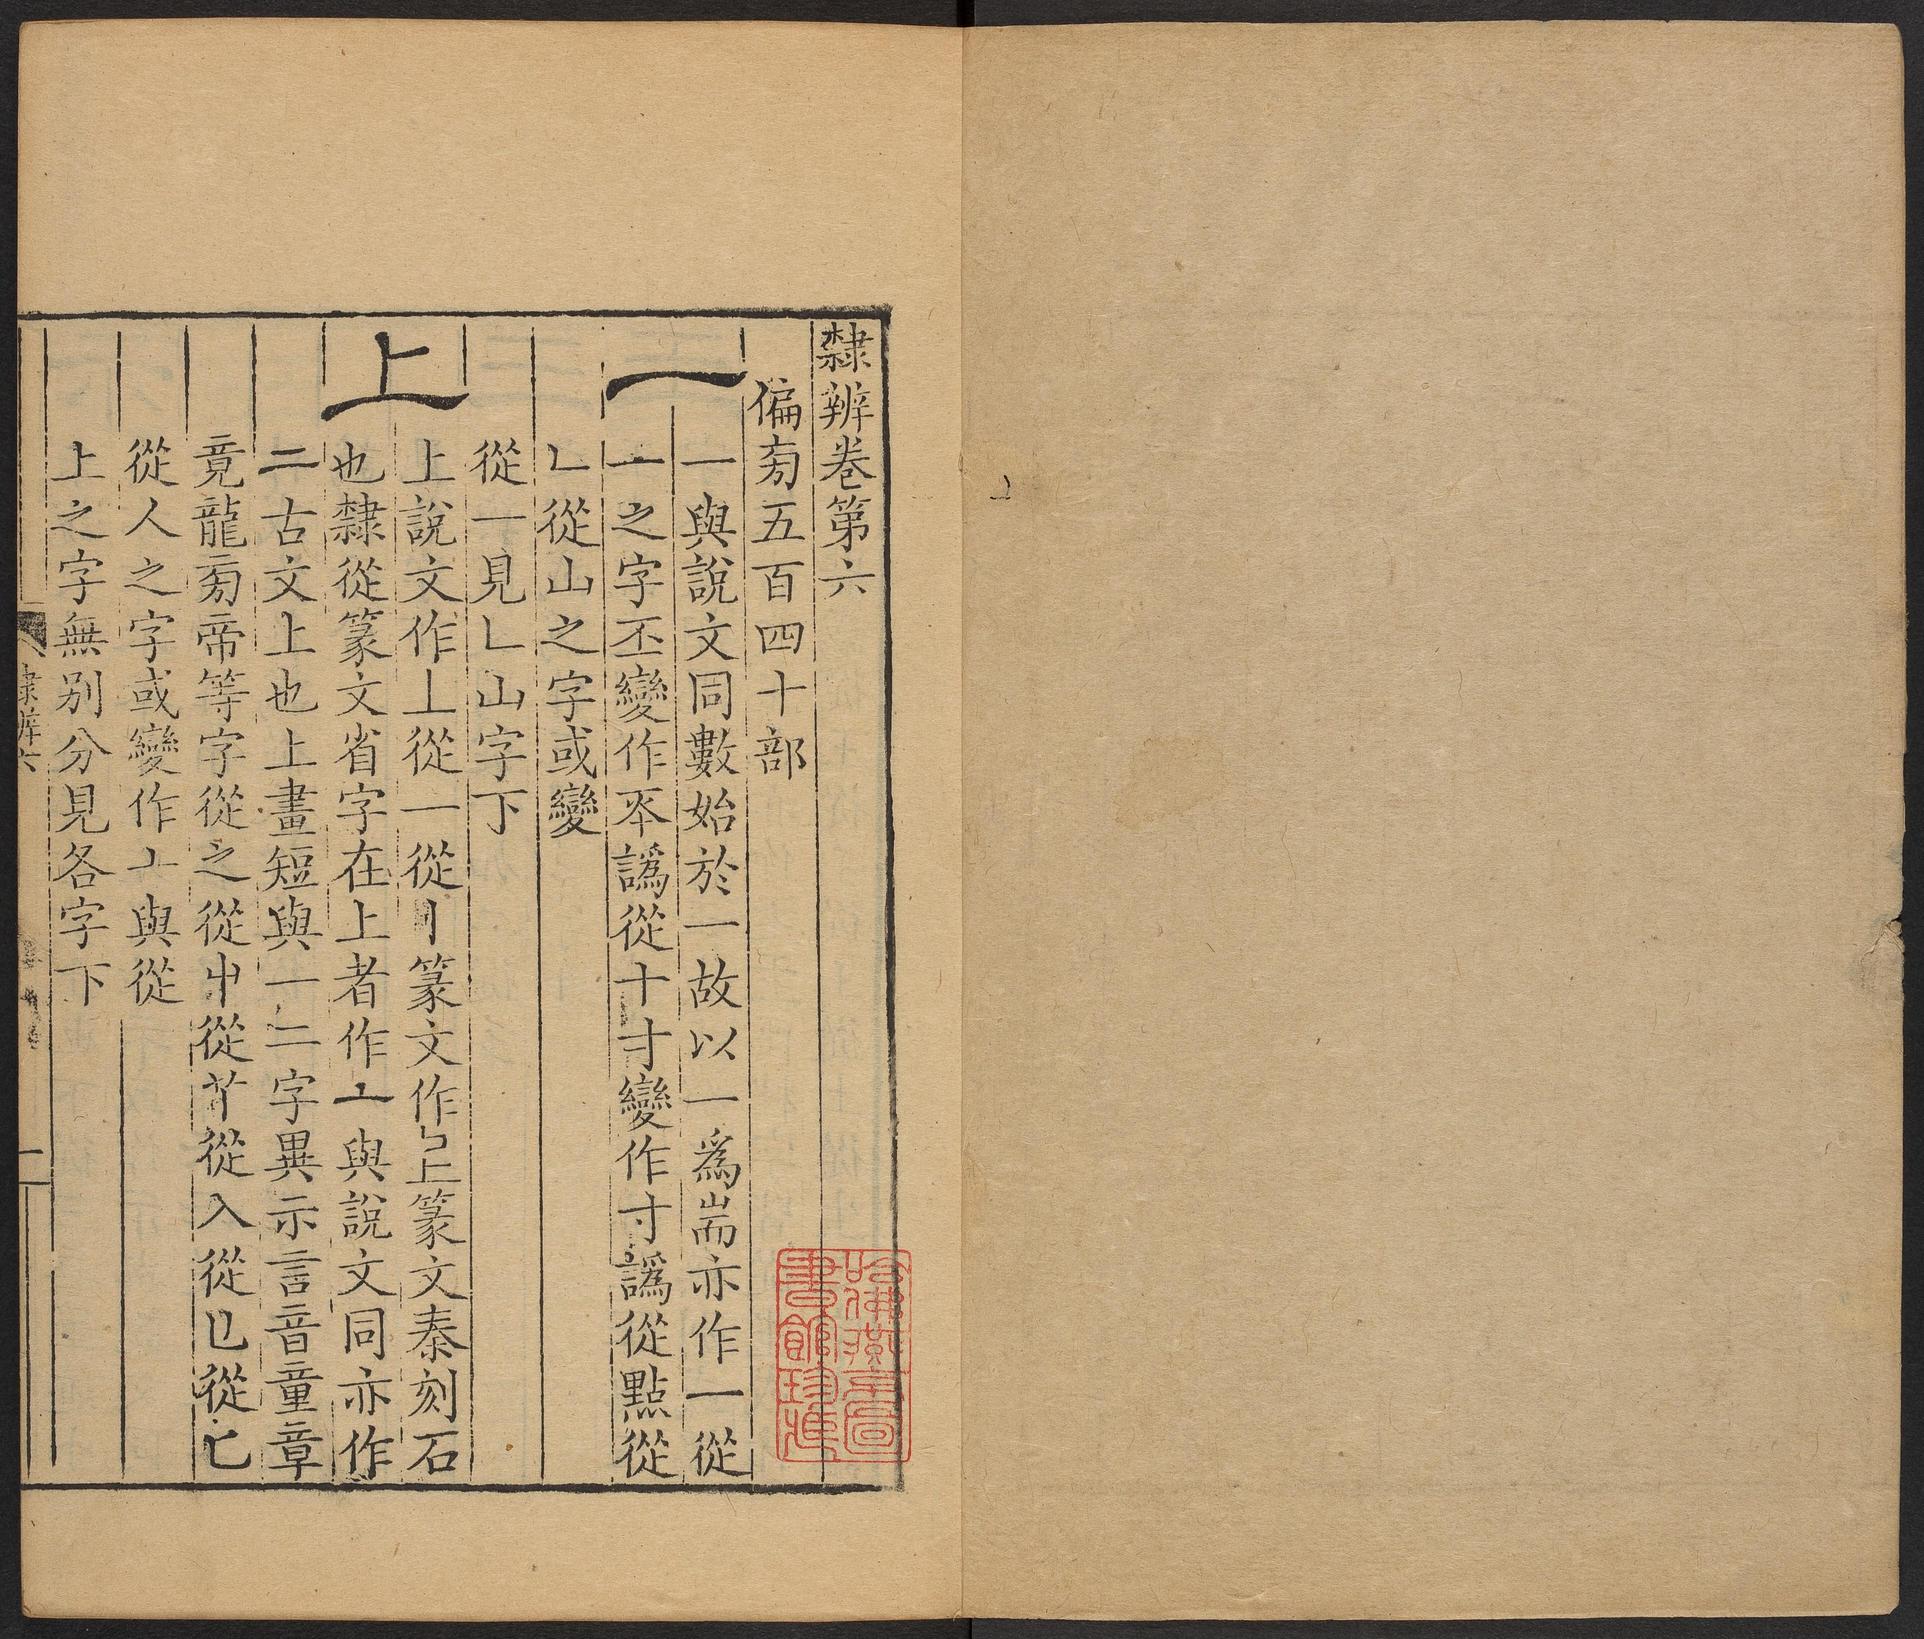 隸辨卷第六
偏旁五百四十部
一
一與說文同數始於一故以一爲耑亦作一從
一之字丕變作㔻譌從十寸變作寸譌從點從
乚從山之字或變
從一見乚山字下
上
上說文作丄從一從丨篆文作𠄞上篆文秦刻石
也隸從篆文省字在上者作亠與說文同亦作
二古文上也上畫短與一二字異示言音童章
竟龍旁帝等字從之從屮從艹從入從㔾從亡
從人之字或變作亠與從
上之字無別分見各字下
隸辨六
一
哈佛燕京圖
書館珍藏